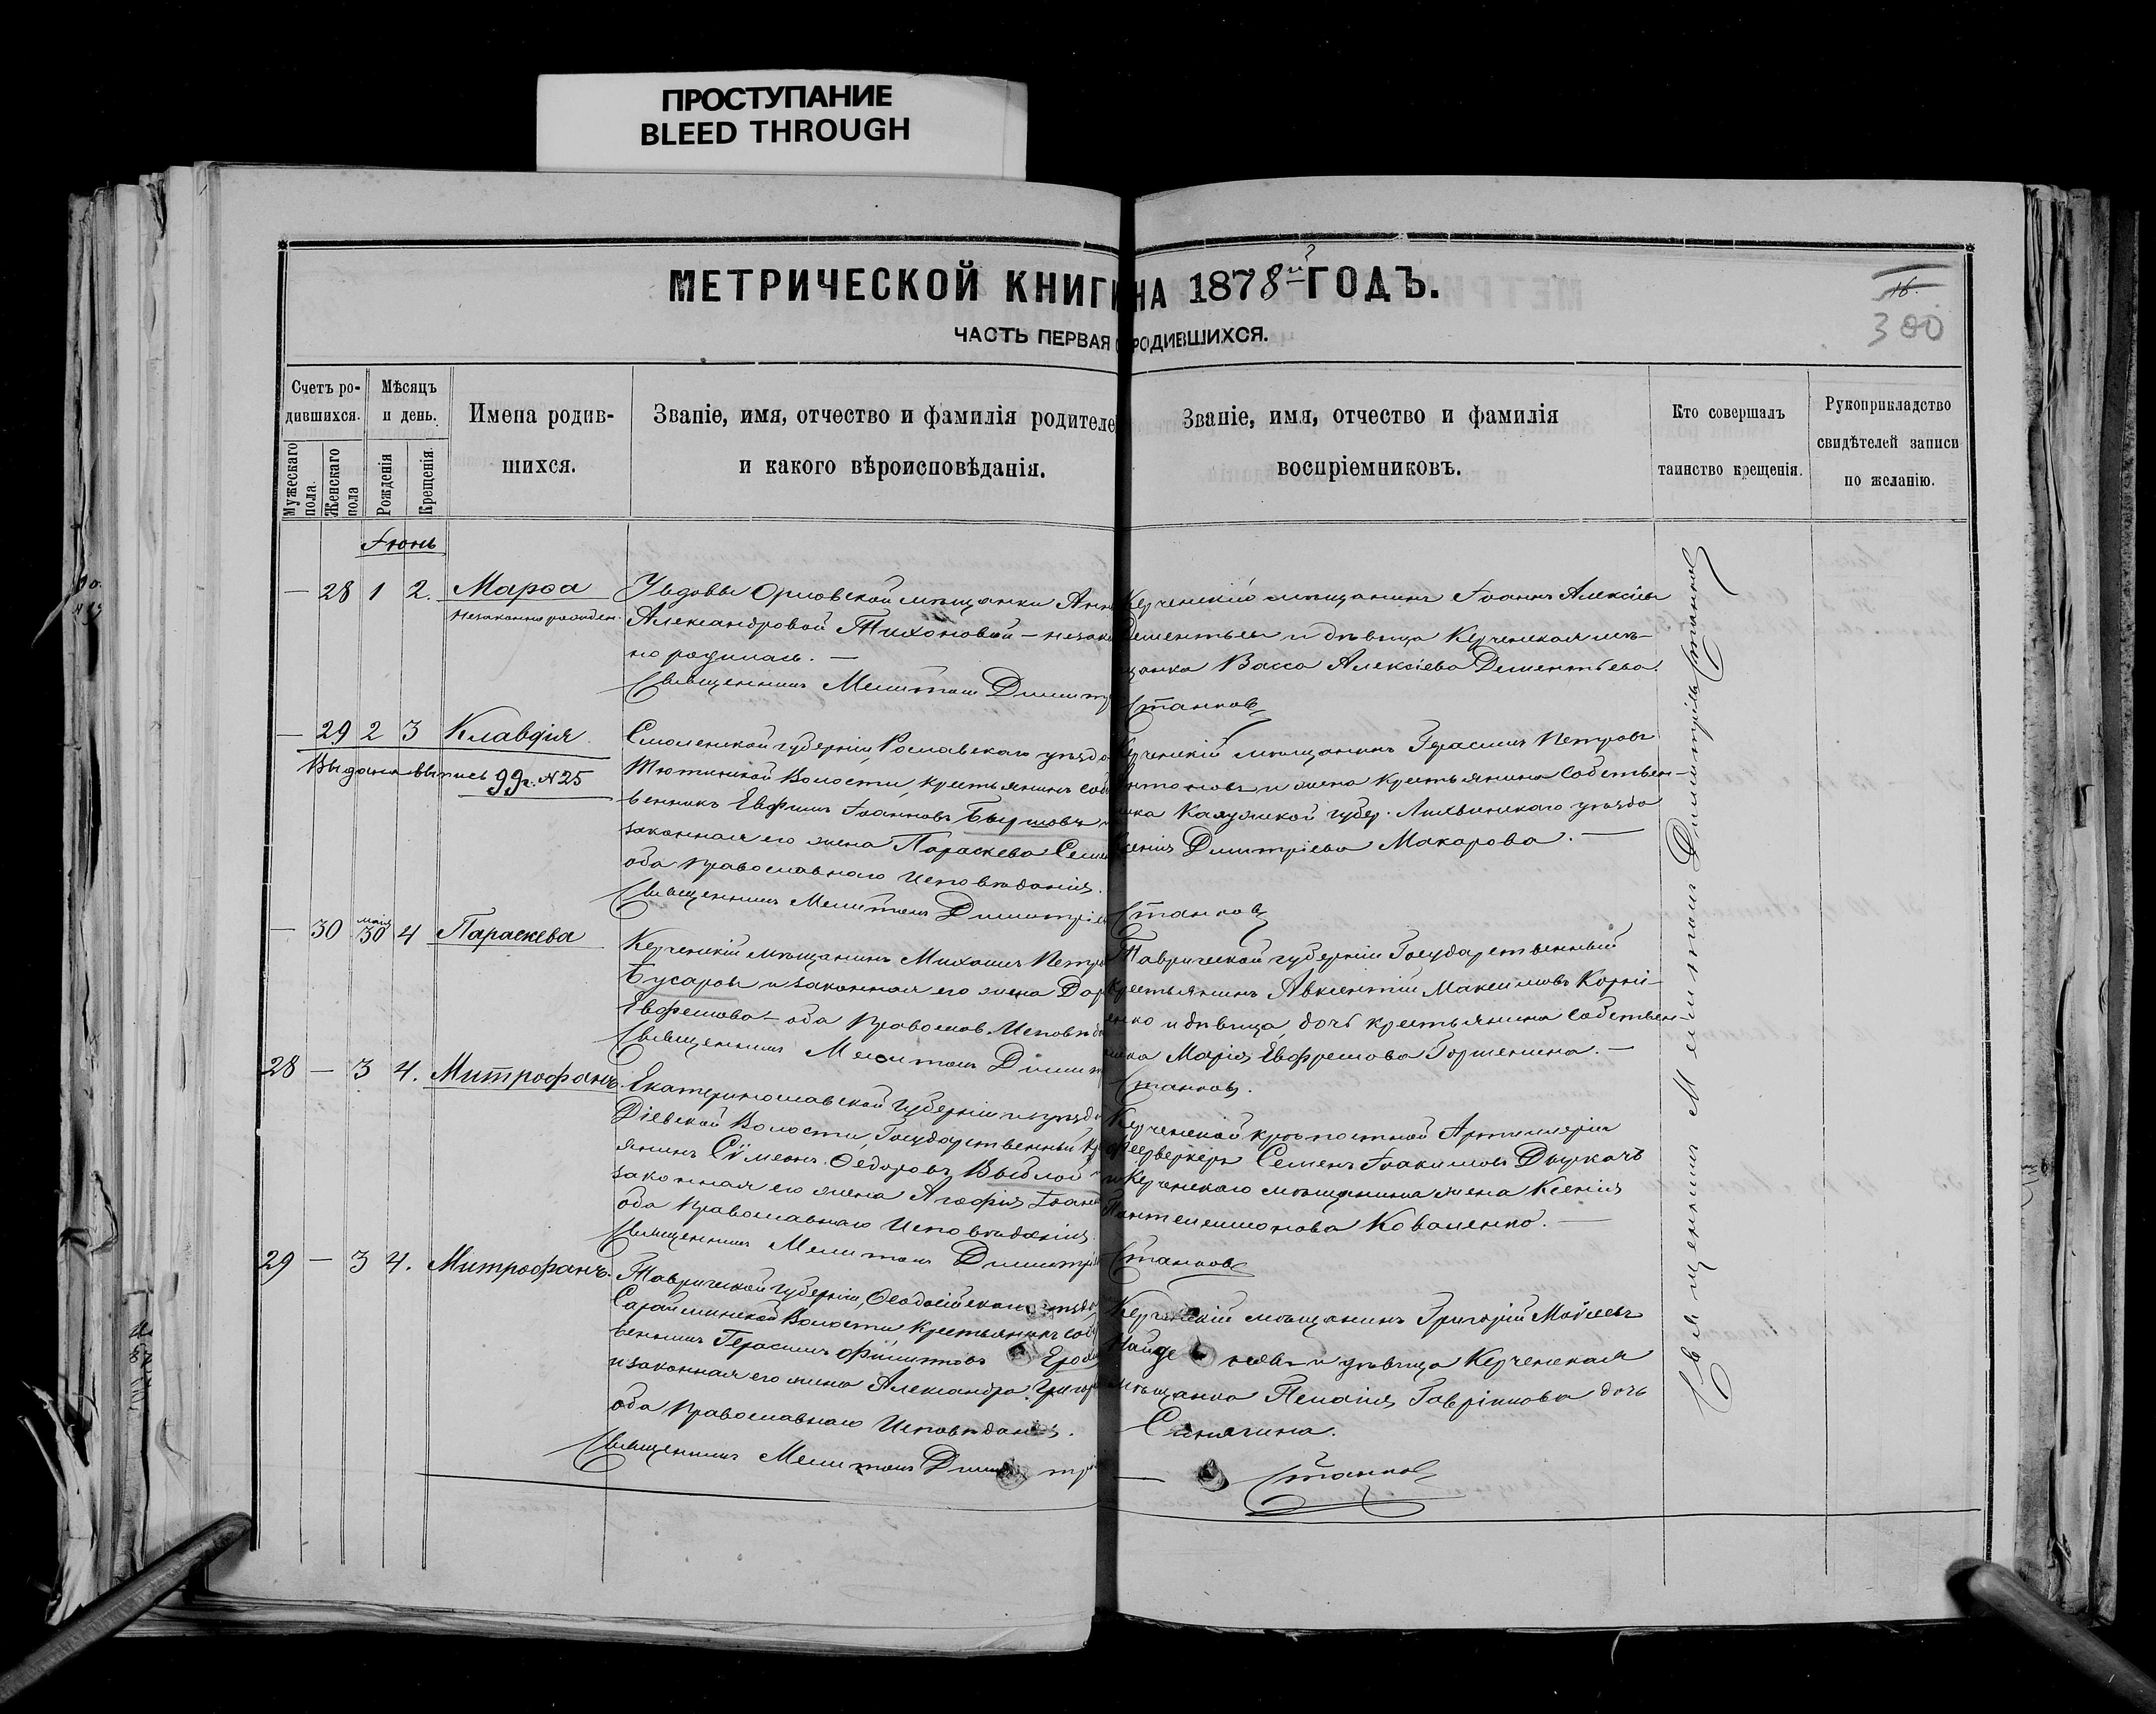 ПРОСТУПАНИЕ
BLEED THROUGH
МЕТРИЧЕСКОЙ КНИГИ НА 1878й ГОДЪ.
ЧАСТЬ ПЕРВАЯ О РОДИВШИХСЯ.
16.
300
Счетъ родившихся.
Мужескаго пола.
Женскаго пола
Мѣсяцъ и день.
Рожденія
Крещенія.
Имена родив-
шихся.
Званіе, имя, отчество и фамилія родителе
и какого вѣроисповѣданія.
Званіе, имя, отчество и фамилія
воспріемниковъ.
Кто совершалъ
таинство крещенія.
Рукоприкладство
свидѣтелей записи
по желанію.
Іюнь
— 28 1 2. Марѳа
незаконно рожден.
Александровой Тихоновой — незако
но родилась. —
Священникъ Мелитонъ Димитр
Керченскій мѣщанинъ Іоаннъ Алексіевъ
Дементьевъ и дѣвица Керченская мѣ-
щанка Васса Алексіева Дементьева.
Станковъ
— 29 2 3 Клавдія
Выдана выпись 99г. № 25
Смоленской губерніи, Рославскаго уѣзда
Тютинской Волости, крестьянинъ соб
венникъ Евфимъ Іоанновъ Бырловъ и
законная его жена Параскева Семен
оба православнаго исповѣданія.
Священникъ Мелитонъ Димитріев
Керченскій мѣщанинъ Герасимъ Петровъ
Антоновъ и жена крестьянина собствен-
ника Калужской губер. Лихвинскаго уѣзда
Ксенія Дмитріева Макарова. —
Станковъ
— 30 мая 30 4 Параскева
Керченскій мѣщанинъ Михаилъ Петро
Бусаровъ и законная его жена Дар
Евфремова — оба православ. исповѣда
Священникъ Мелитонъ Димит
Таврической губерніи Государственный
крестьянинъ Авксентій Максимовъ Корні-
енко и дѣвица, дочь крестьянина собствен-
ника Марія Евфремова Горшенина. —
Станковъ.
28 — 3 4. Митрофанъ.
Екатеринославской Губерніи и уѣзда
Діевской Волости, Государственный кр
янинъ Сімеонъ Ѳедоровъ Выблой и
законная его жена Агафія Іоанн
оба православнаго исповѣданія
Священникъ Мелитонъ Димитрі
Керченской крѣпостной Артиллеріи
фейерверкеръ Семенъ Іоакимовъ Дыркачъ
и Керченскаго мѣщанина жена Ксенія
Пантелеимонова Коваленко. —
Станковъ
29 — 3 4. Митрофанъ.
Таврической губерніи, Ѳеодосійскаго уѣзда
Сарайминской Волости крестьянинъ соб
венникъ Герасимъ Филиповъ
и законная его жена Александра Григор
оба православнаго исповѣданія.
Священникъ Мелитонъ Димитрі
Керченскій мѣщанинъ Григорій Моисеевъ
и дѣвица Керченская
мѣщанка Пелагія Гаврилова дочь
Синягина.
— Станковъ
Священникъ Мелитонъ Димитріевъ Станковъ